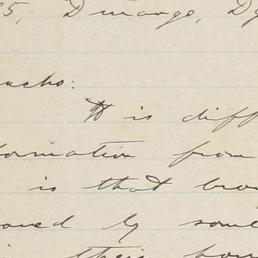 5, Durango, Dg
ucho:
It is diff
formation from
is that bro
oved by some